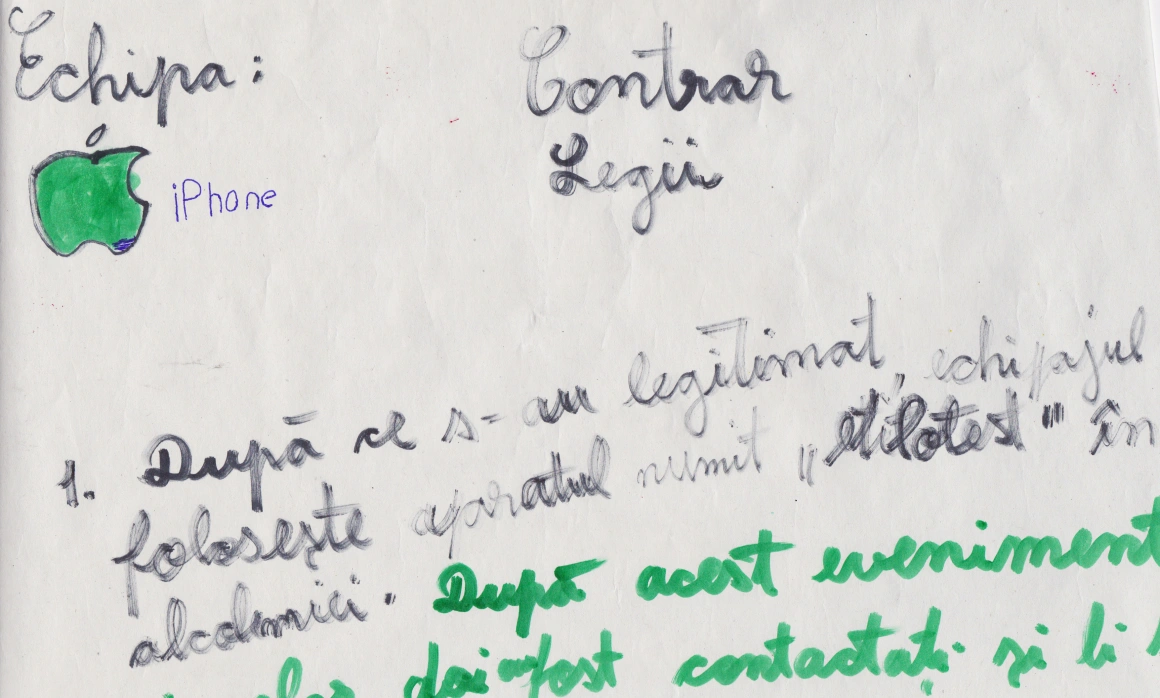 Echipa:
Contrar
Legii
iPhone
1. După ce s-au legitimat, echipajul
folosește aparatul numit „etilotest" în
alcolmici. După acest eveniment
doi au fost contactați și li